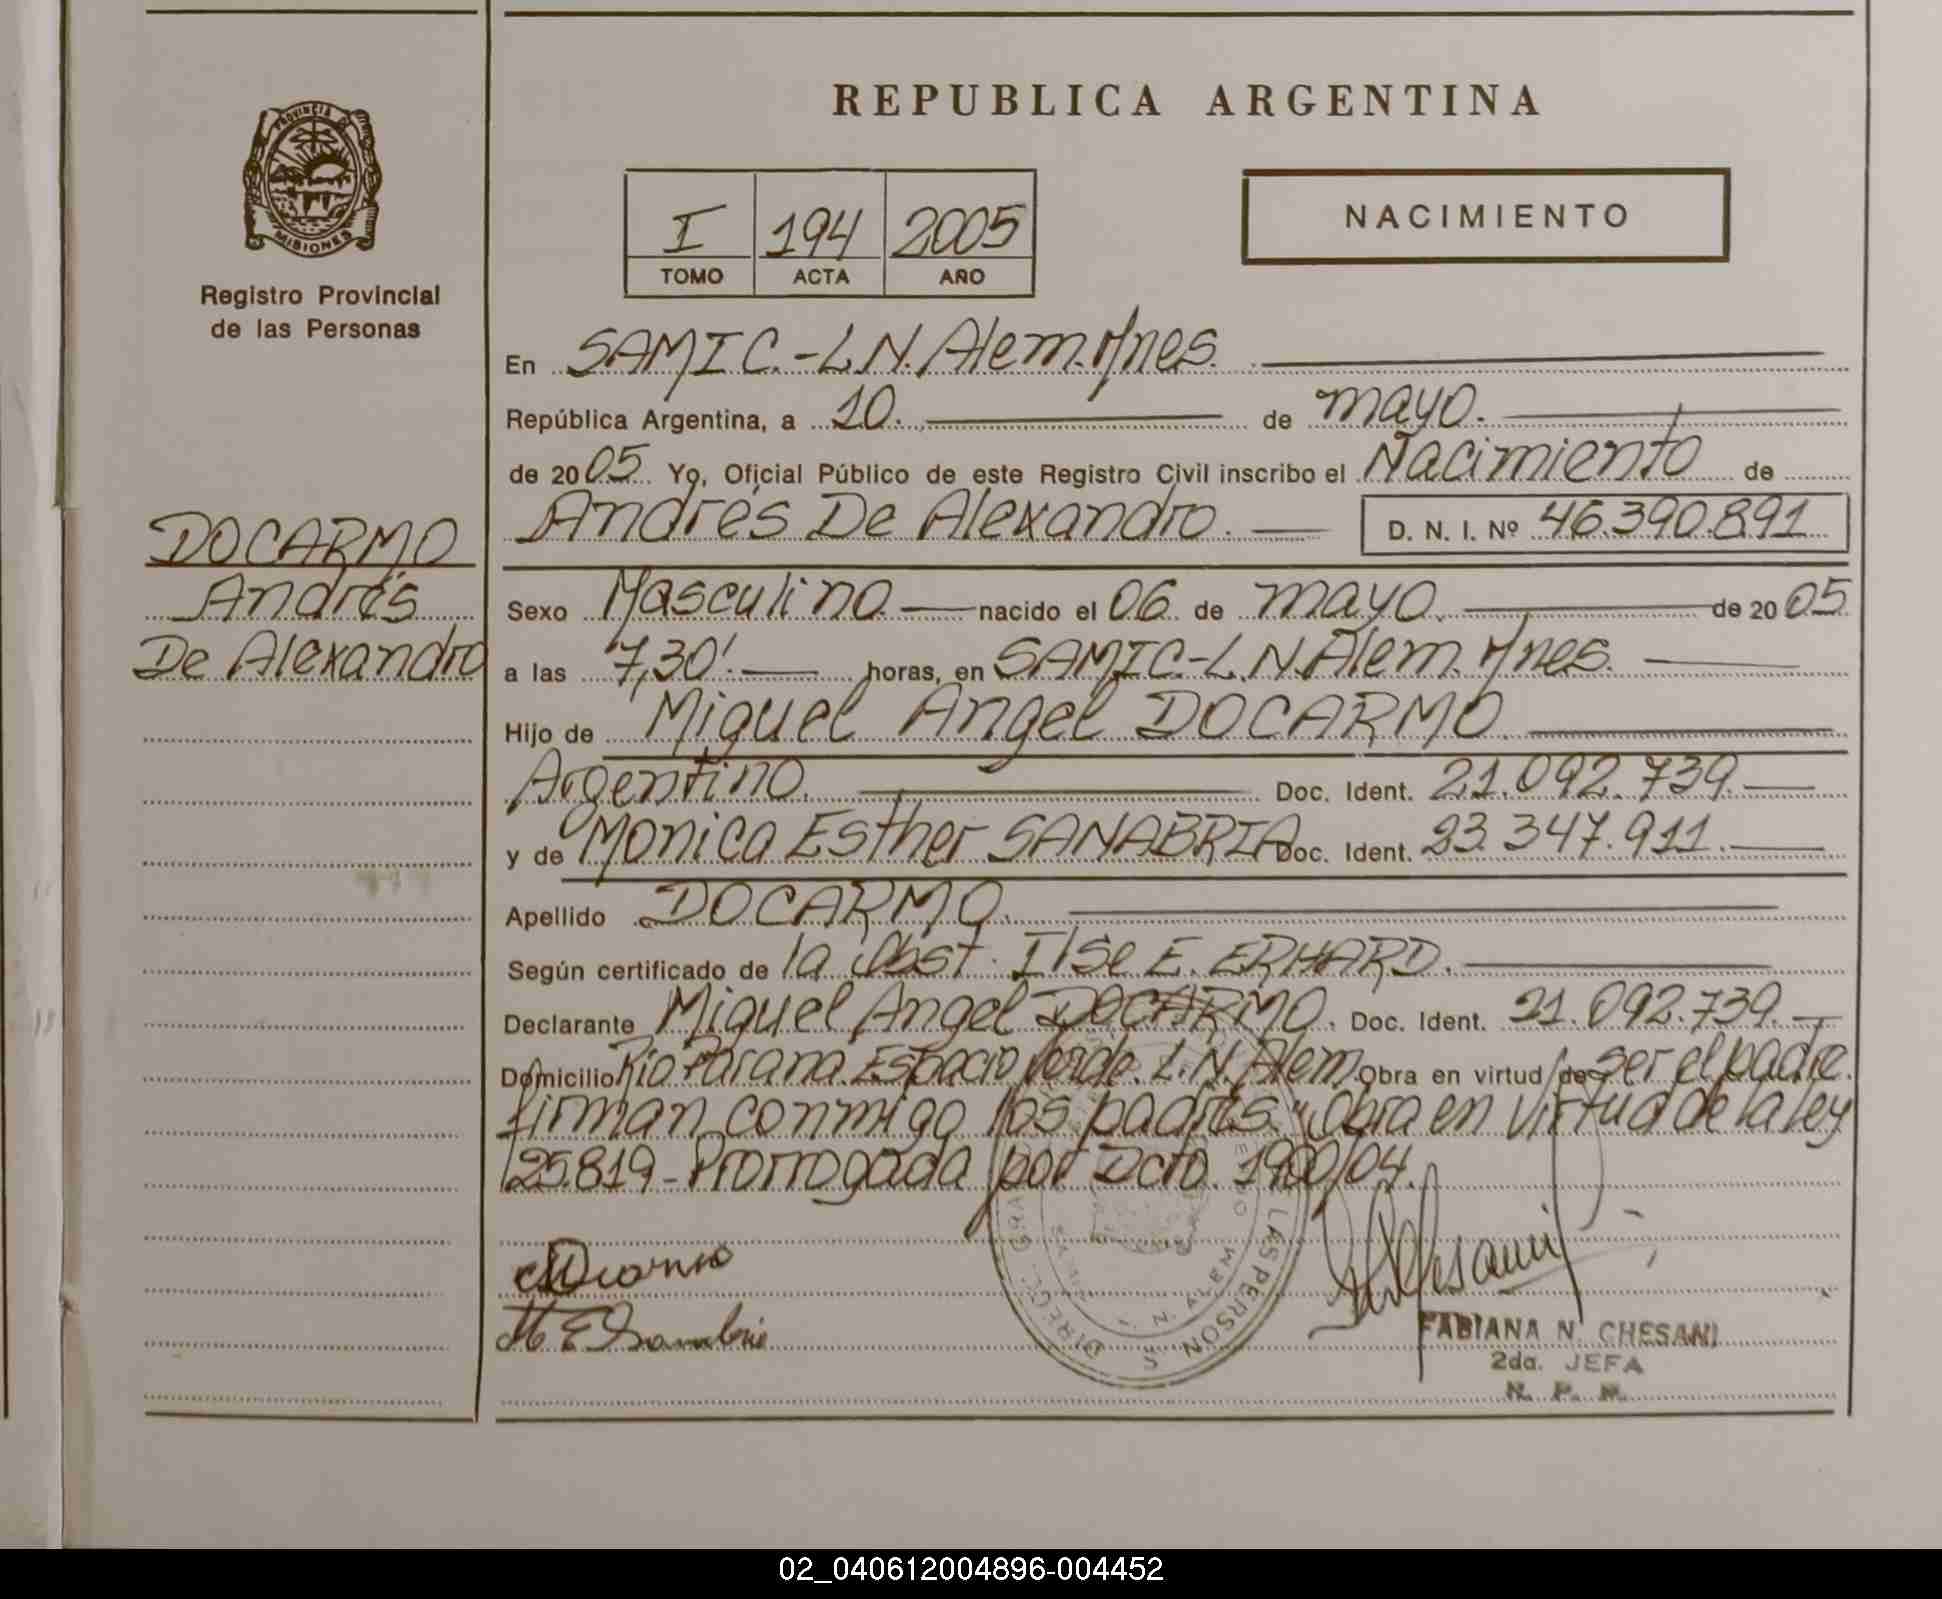 REPUBLICA ARGENTINA
PROVINCIA DE
MISIONES
Registro Provincial
de las Personas
I 194 2005
TOMO ACTA AÑO
NACIMIENTO
En SAMIC.-L.N.Alem.Mnes.
República Argentina, a 10. de mayo.
de 2005 Yo, Oficial Público de este Registro Civil inscribo el Nacimiento de
Andrés De Alexandro. D. N. I. Nº 46.390.891
DOCARMO
Andrés
De Alexandro
Sexo Masculino nacido el 06 de mayo de 2005
a las 7,30'. horas, en SAMIC-L.N.Alem.Mnes.
Hijo de Miguel Angel DOCARMO
Argentino. Doc. Ident. 21.092.739.
y de Monica Esther SANABRIA Doc. Ident. 23.347.911.
Apellido DOCARMO.
Según certificado de la Obst. Ilse E. ERHARD.
Declarante Miguel Angel DOCARMO. Doc. Ident. 21.092.739.
Domicilio Rio Parana Espacio Verde. L.N.Alem. Obra en virtud de ser el padre.
firman conmigo los padres. "Obra en virtud de la ley
25.819-Prorrogada por Dcto. 1900/04.
M E Sanabria
DIRECC. GRAL. LAS PERSONAS
FABIANA N. CHESANI
2da. JEFA
R. P. M.
02_040612004896-004452